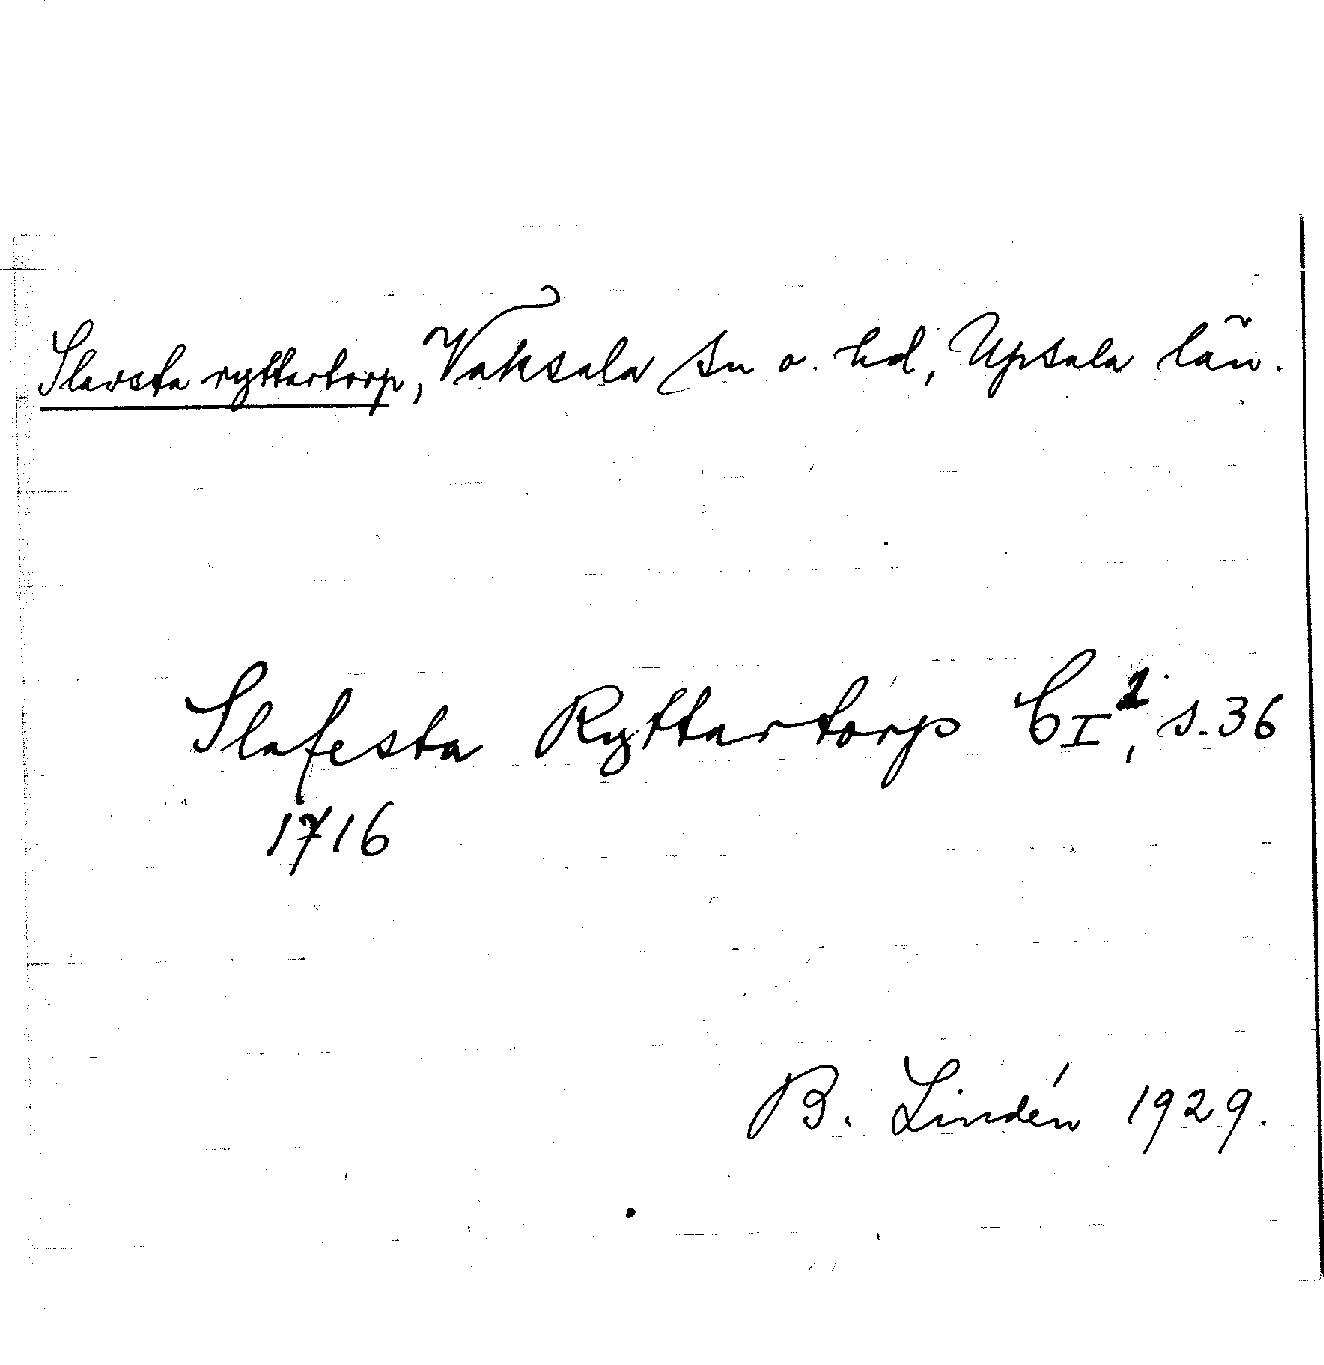 Slavsta ryttartorp, Vaksala sn o. hd, Upsala län.
Slafesta Ryttartorp CI², s. 36
1716
B. Lindén 1929.